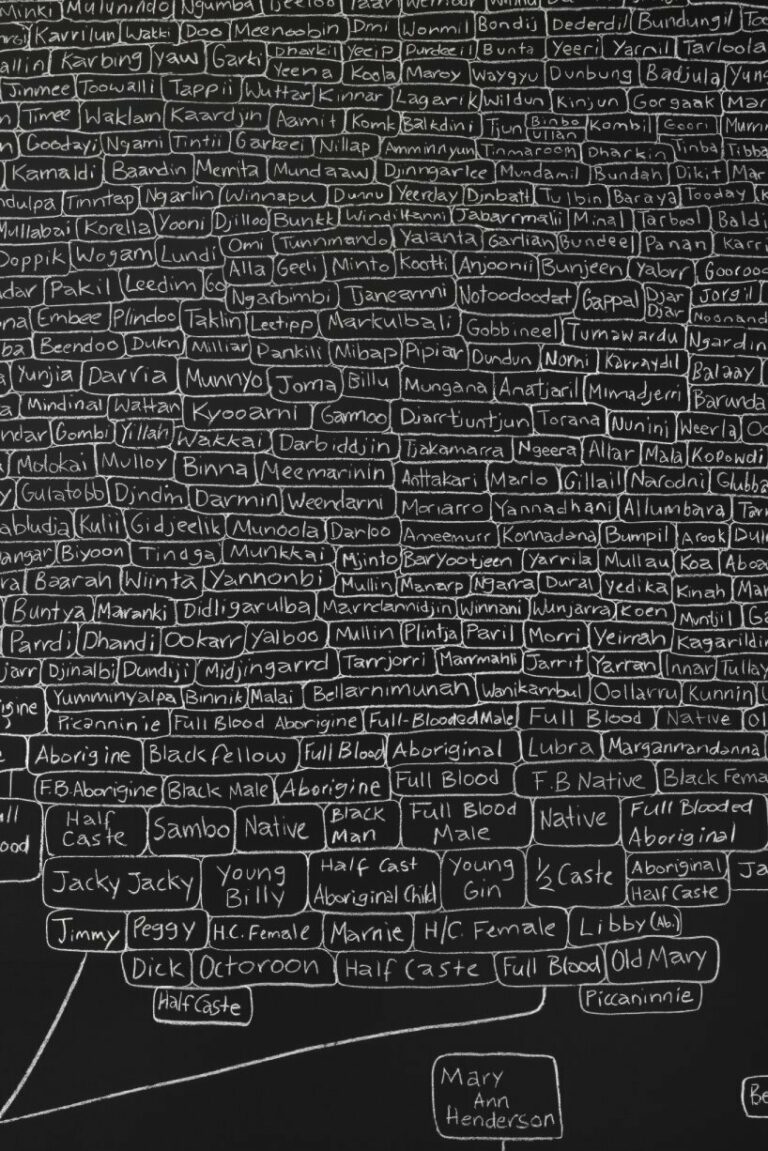 Minki Mulunindo Ngumba
Karrilun Wakki Doo Meenoobin Dmi Wonmil Bondij Dederdil Bundungil
Karbing Yaw Garki Dharkil Yeeip Purdeeil Bunta Yeeri Yarnil Tarloola
Yeena Koola Maroy Waygyu Dunbung Badjula
Jinmee Toowalli Tappii Wuttar Kinnar Lagarik Wildun Kinjun Gorgaak
Timee Waklam Kaardjin Aamit Komk Balkdini Tjun Binbo Ullan Kombil Goori
Goodayi Ngami Tintii Garkeei Nillap Amminnyun Tinmaroom Dharkin Tinba
Kamaldi Baandin Memita Mundaaw Djinngarlee Mundamil Bundah Dikit
Tinntep Ngarlin Winnapu Dunnu Yeerday Djnbatt Tulbin Baraya Tooday
Mullabai Korella Yooni Djilloo Bunkk Windittanni Jabarrmalii Minal Tarbool
Doppik Wogam Lundi Omi Tunnmando Yalanta Garlian Bundeel Panan
Alla Geeli Minto Kootti Anjoonii Bunjeen Yabrr
Pakil Leedim Ngarbimbi Tjanearnni Notoodoodat Gappal Djar Djar Jorgil
Embee Plindoo Taklin Leetipp Markulbali Gobbineel Tumawardu
Beendoo Dukn Milliar Pankili Mibap Pipiar Dundun Nomi Karraydil
Yunjia Darvia Munnyo Joma Billu Mungana Anatjaril Mimadjerri Balaay
Mindinal Wattan Kyooarni Gammoo Djarrtjuntjun Torana Nuninj Weerla
Gombi Yillah Wakkai Darbiddjin Tjakamarra Ngeera Allar Mala Kopowdi
Molokai Mulloy Binna Meemarinin Anttakari Marlo Gillail Narodni
Gulatobb Djndin Darmin Weendarni Moriarro Yannadhani Allumbara
Kulii Gidjeelik Munoola Darloo Ameemurr Konnadana Bumpil Arook
Biyoon Tindga Munkkai Mjinto Baryootjeen Yarrila Mullau Koa
Baarah Wiinta Yannonbi Mullin Manarp Ngarra Dural Yedika Kinah
Buntya Maranki Didligarulba Marrdannidjin Winnani Wunjarra Koen Muntjil
Parrdi Dhandi Ookarr Yalboo Mullin Plintja Paril Morri Yeirrah
Djinalbi Dundiji Midjingarrd Tarrjorri Marrmahli Jarrit Yarran Innar
Yumminyalpa Binnik Malai Bellarnimunah Wanikambul Oollarru Kunnin
Picanninie Full Blood Aborigine Full-Blooded Male Full Blood Native
Aborigine Black fellow Full Blood Aboriginal Lubra Margannandanna
F.B. Aborigine Black Male Aborigine Full Blood F.B Native Black
Half Caste Sambo Native Black Man Full Blood Male Native Full Blooded Aboriginal
Jacky Jacky Young Billy Half Cast Aboriginal Child Young Gin ½ Caste Aboriginal
Half Caste
Jimmy Peggy H.C. Female Marnie H/C. Female Libby (Ab.)
Dick Octoroon Half Caste Full Blood Old Mary
Half Caste Piccaninnie
Mary
Ann
Henderson